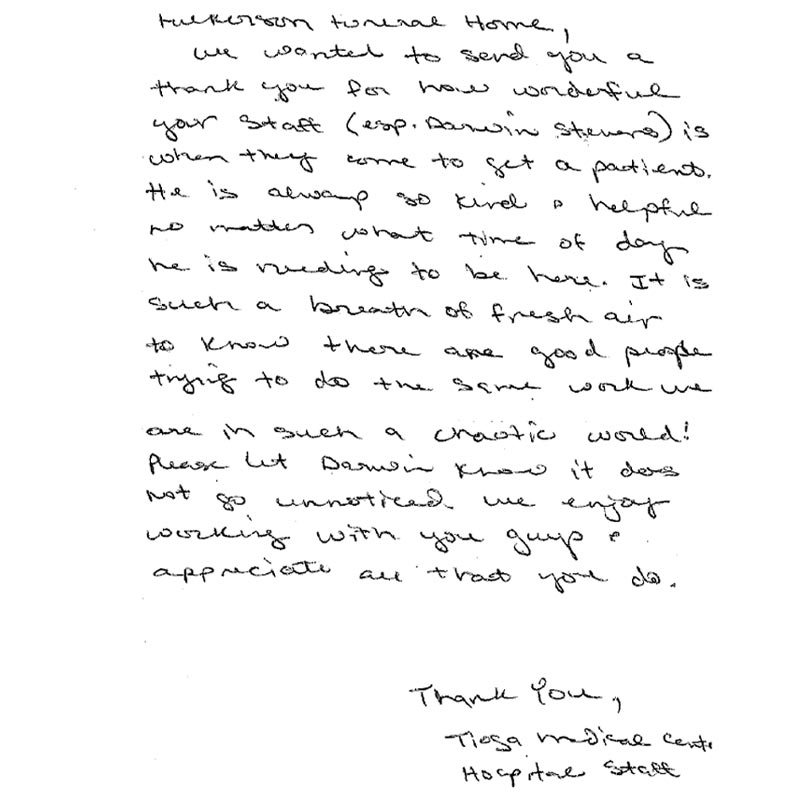 Fulkerson Funeral Home,
We wanted to send you a
thank you for how wonderful
your staff (esp. Darwin Stevens) is
when they come to get a patient.
He is always so kind & helpful
no matter what time of day
he is needing to be here. It is
such a breath of fresh air
to know there are good people
trying to do the same work we
are in such a chaotic world!
Please let Darwin know it does
not go unnoticed we enjoy
working with you guys &
appreciate all that you do.
Thank You,
Tioga Medical Cente
Hospital Staff